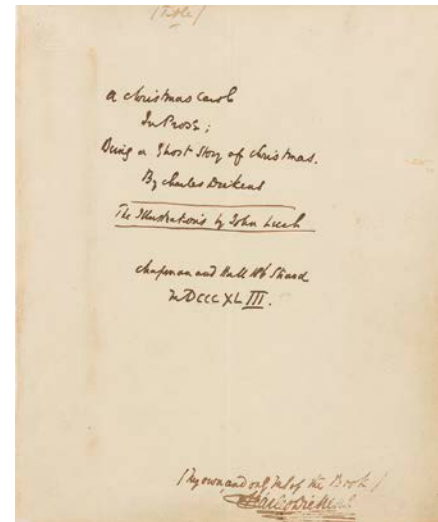 (Title)
A Christmas Carol
In Prose;
Being a Ghost Story of Christmas.
By Charles Dickens
The Illustrations by John Leech
Chapman and Hall 186 Strand
MDCCCXLIII.
(My own and only MS of the Book)
Charles Dickens